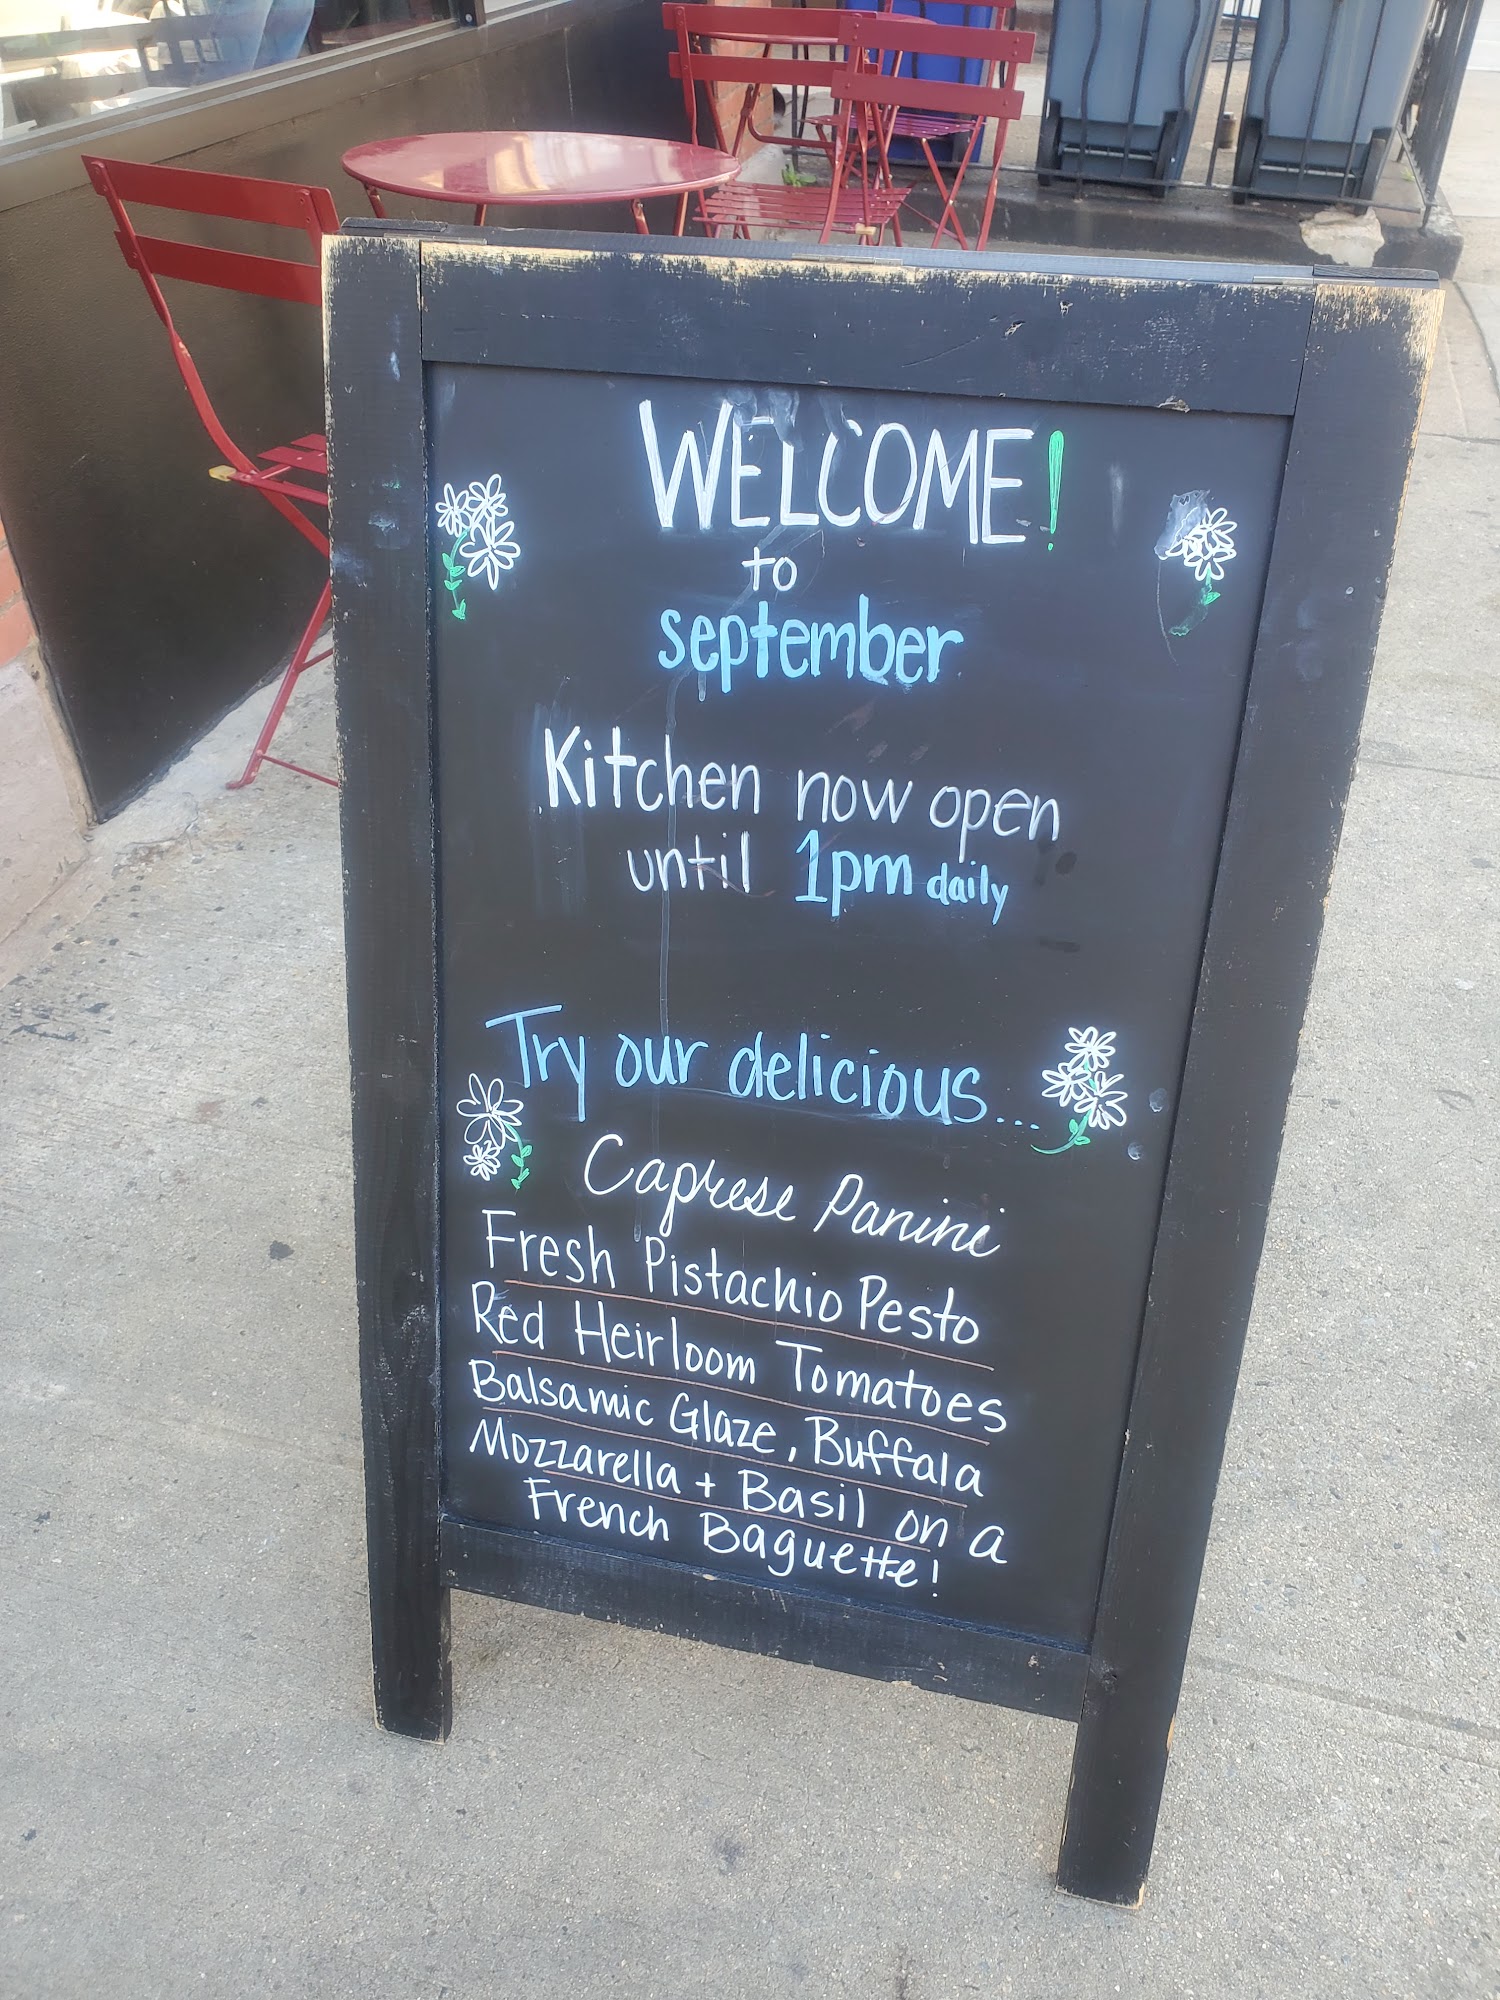 WELCOME!
to
september
Kitchen now open
until 1pm daily
Try our delicious...
Caprese Panini
Fresh Pistachio Pesto
Red Heirloom Tomatoes
Balsamic Glaze, Buffala
Mozzarella + Basil on a
French Baguette!